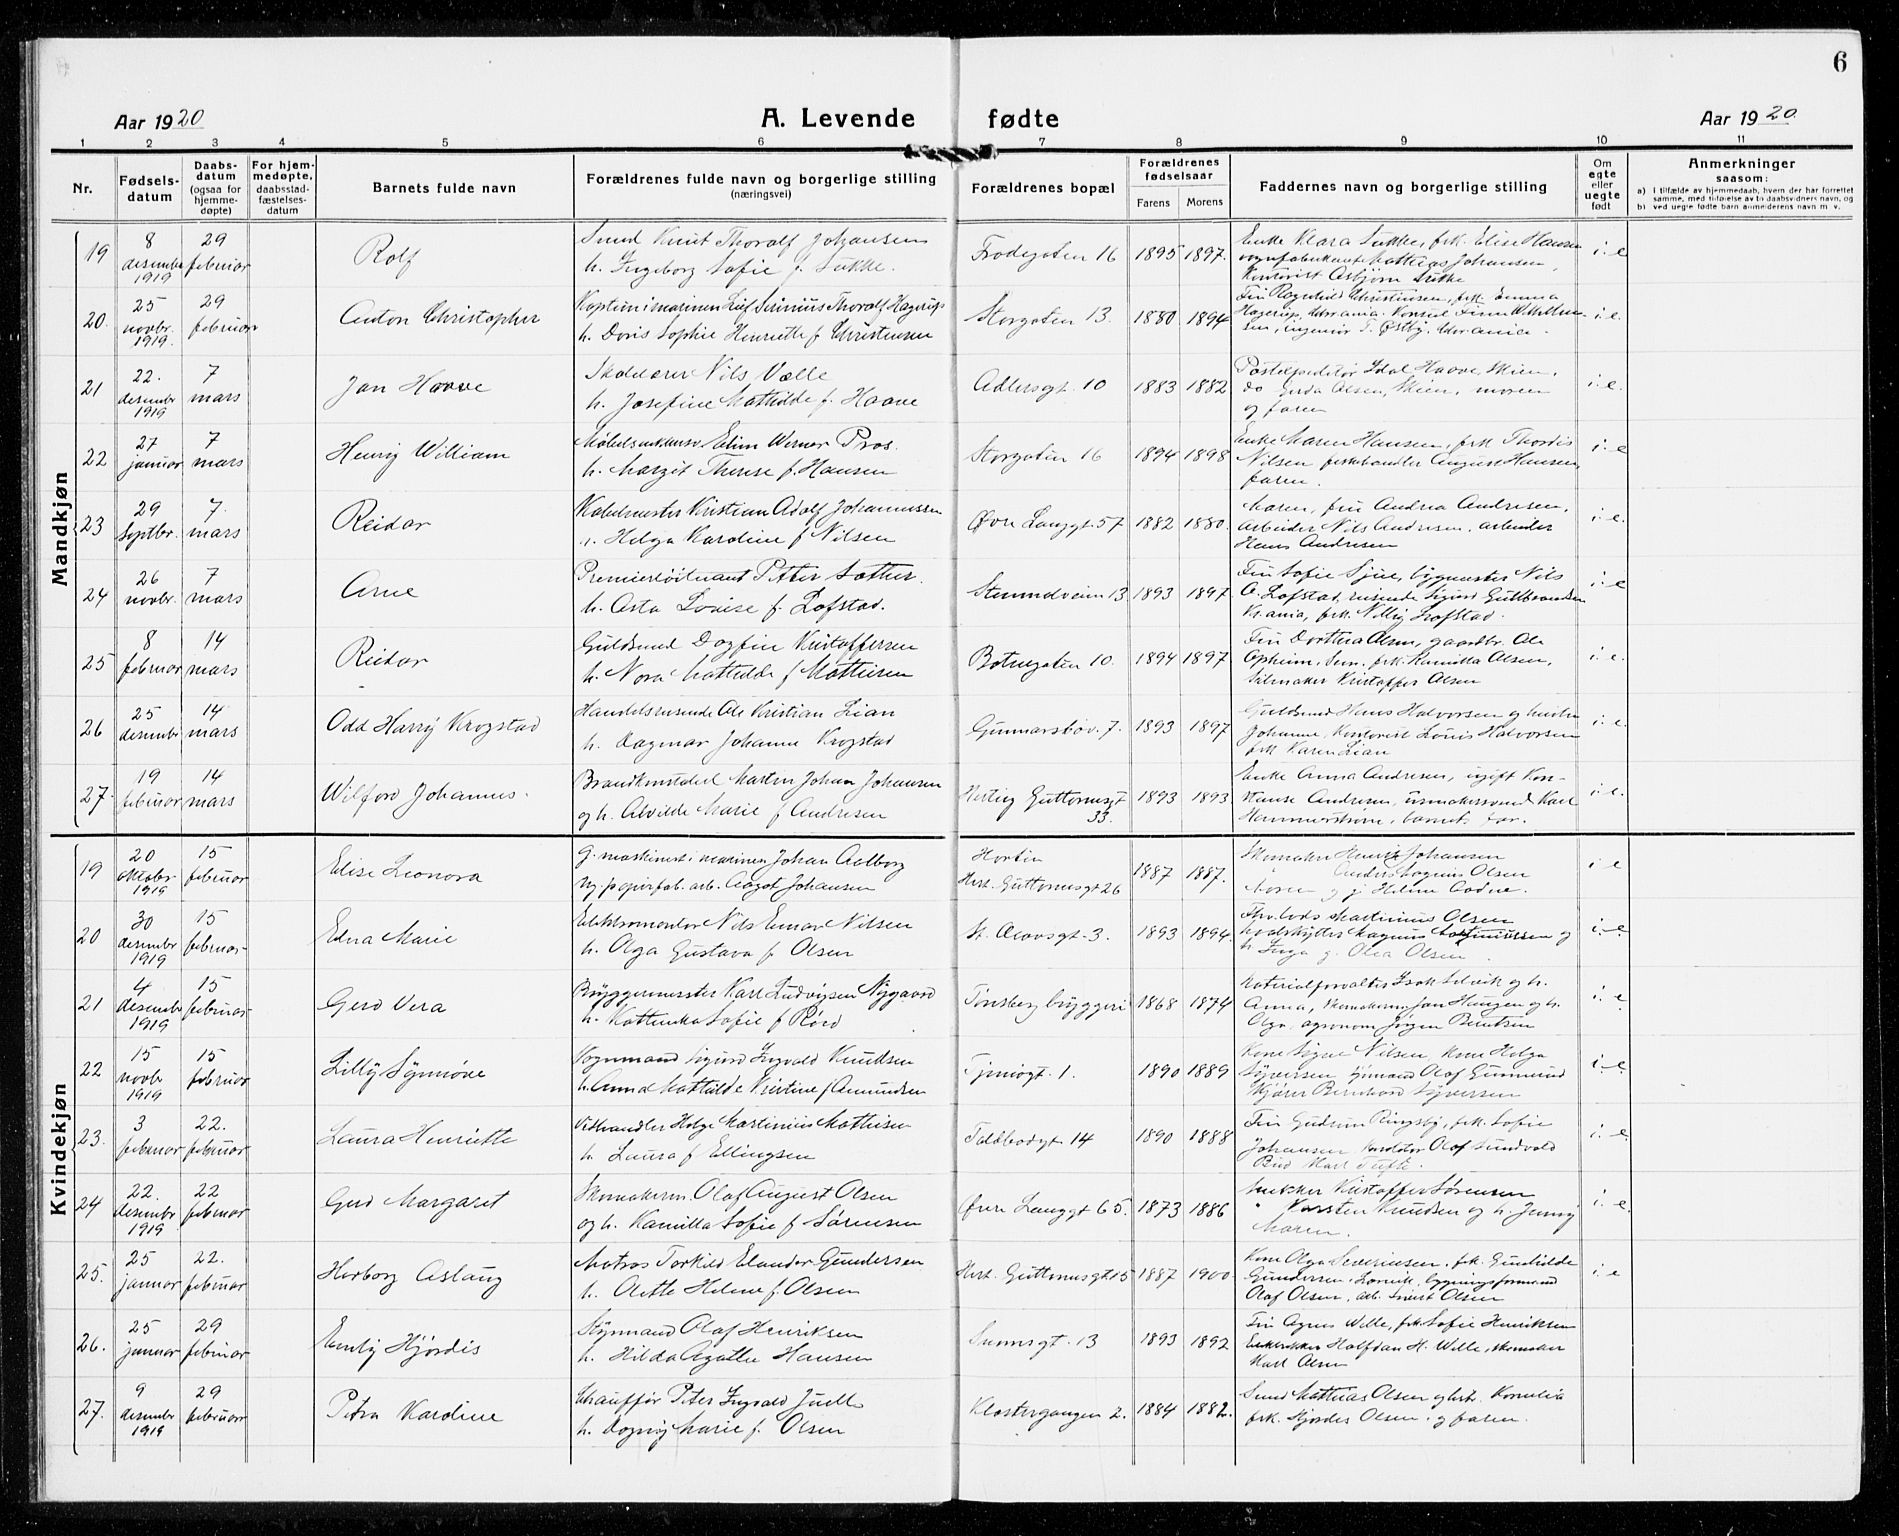 6
Aar 1920
A. Levende fødte
Aar 1920
1 2 3 4 5 6 7 8 9 10 11
Nr.
Fødsels-
datum
Daabs-
datum
(ogsaa for
hjemme-
døpte)
For hjem-
medøpte,
daabsstad-
fæstelses-
datum
Barnets fulde navn
Forældrenes fulde navn og borgerlige stilling
(næringsvei)
Forældrenes bopæl
Forældrenes
fødselsaar
Farens Morens
Faddernes navn og borgerlige stilling
Om
egte
eller
uegte
født
Anmerkninger
saasom:
a) I tilfælde av hjemmedaab, hvem der har forrettet
samme, med tilføielse av to daabsvidners navn, og
b) ved uegte fødte barn anmelderens navn m. v.
Mandkjøn
19 8 desember 1919 29 februar Rolf
Smed Knut Thoralf Johansen
h. Ingeborg Sofie f. Sukke.
Frodegaten 16 1895 1897.
Enke Klara Sukke, frk. Elise Hansen
vognfabrikant Mathias Johansen,
Kontorist Asbjørn Sukke
i. e
20. 25 novbr. 1919. 29 februar Anton Christopher
Kaptein i marinen Leif Thoralf Hagerup
h. Doris Sophie Henriette f Christensen
Storgaten 13. 1880 1894
Fru Ragnhild Christensen, frk. Emma
Hagerup, Kr.ania. Konsul Finn Wilhelm-
sen, ingeniør T. Østby, Kr.ania.
i. e.
21 22. desember 1919 7 mars Jan Haave
Skolelærer Nils Valle
h. Josefine Mathilde f. Haave
Adlersgt. 10 1883 1882
Postexpeditør Idal Haave, Skien,
do Gerda Olsen, Skien, moren
og faren
i. e.
22 27 januar 7 mars Henry William
Werner Pros.
h. Margit Therese f. Hansen
Storgaten 16 1894 1898
Enke Maren Hansen, frk Thordis
Nilsen fiskehandler August Hansen,
faren.
i. e
23 29 septbr. 7. mars Reidar
Kristian Adolf Johannessen
h. Helga Karoline f Nilsen
Øvre Langgt 57 1882 1880.
Maren, fru Andrea Andresen,
arbeider Nils Andresen, arbeider
Hans Andresen
i. e.
24 26 novbr. 7 mars Arne
Premierløitnant Petter Sæther.
h. Asta Louise f. Lofstad.
13 1893 1897.
Fru Sofie bygmester Nils
A. Lofstad, reisende Sigurd Gulbrandsen
Kr.ania, frk. Lofstad.
i. e
25 8 februar 14 mars Reidar
Guldsmed Dagfin Kristoffersen
h. Nora Mathilde f Mathisen
Botnegaten 10. 1894 1897
Fru Dorthea Olsen, gaardbr. Ole
Opheim, Sem. frk. Kamilla Olsen,
Seilmaker Kristoffer Olsen
i. e.
26 25 desember 14 mars Odd Harry Krogstad
Handelsreisende Ole Kristian Lian
h. Dagmar Johanne Krogstad
Gunnarsbøv. 7. 1893 1897
Guldsmed Hans Halvorsen og hustru
Johanne, Kontorist Louis Halvorsen
frk Karen Lian
i. e
27. 19 februar 14 mars Wilford Johannes.
Brandkonstabel Martin Johan Johansen
og h. Alvilde Marie f Andresen
Hertug Guttormsgt 33. 1893 1893
Enke Anna Andresen, ugift Kon-
stanse Andresen, Karl
Hammerstrøm, barnets far.
i. e.
Kvindekjøn
19 20 oktober 1919 15 februar Elise Leonora
g. maskinist i marinen Johan Aalborg
ug. papirfab. arb. Aagot Johansen
Horten
Hert. Guttormsgt 26 1887 1887.
Skomaker Henrik Johansen
" Anders Magnus Olsen
Moren og j.
i e
20 30 desember 1919 15 februar Edna Marie
Elektromontør Nils Einar Nilsen
h. Olga Gustava f. Olsen
St. Olavsgt. 3. 1893 1894.
Martinius Olsen
Magnus og
h. Inga g. Olea Olsen.
i. e.
21 4 desember 1919 15 februar Gerd Vera
Bryggermester Karl Ludvigsen Nygaard
h. Kathinka Sofie f Rørd
Tønsberg bryggeri 1868 1874
Materialforvalter Isak Selvik og h.
Anna, Jan Haugen og h.
Olga, agronom Jørgen Berntsen
i. e
22 15 novbr 1919 15 februar Lilly Synnøve
Vognmand Sigurd Ingvald Knudsen
h. Anna Mathilde Kristine f Amundsen
Tjømøgt. 1. 1890 1889
Kone Signe Nilsen, kone Helga
Syversen, sjømand Olaf Gunnerud
Kjører Bernhard Syversen
i. e.
23. 3 februar 22. februar Laura Henriette
Vedhandler Helge Martinius Mathisen
h Laura f Ellingsen
Toldbodgt 14 1890 1888
Fru Gudrun Ringsby, frk. Sofie
Johansen, Olaf Sundvold
Bud Karl Tufte.
i. e.
24 22. desember 1919 22 februar Gerd Margaret
Skomakerm. Olaf August Olsen
og h. Kamilla Sofie f Sørensen
Øvre Langgt 65. 1873 1886
Snekker Kristoffer Sørensen
" Karsten Knudsen og h. Jenny
Moren.
i. e.
25. 25 januar 22. februar Herborg Aslaug
Matros Torkild Elander Gundersen
h. Olette Helene f. Olsen
Hert. Guttormsgt 15 1887 1900
Kone Olga Severinsen, frk. Gunhilde
Gundersen, Larvik, bygningsformand
Olaf Olsen, arb. Olsen
i. e
26. 25 januar 29 februar Emly Hjørdis
Styrmand Olaf Henriksen
h. Hilda Agathe Hansen
Svensgt. 13 1893 1892
Fru Agnes Wille, frk Sofie Henriksen
Halfdan H. Wille, skomaker
Karl Olsen
27. 9 desember 1919 29 februar Petra Karoline
Chauffør Peter Ingvald Juell
h. Dagny Marie f. Olsen
Klostergangen 2. 1884 1882.
Smed Mathias Olsen og h. Kornelia
frk. Hjørdis Olsen og faren.